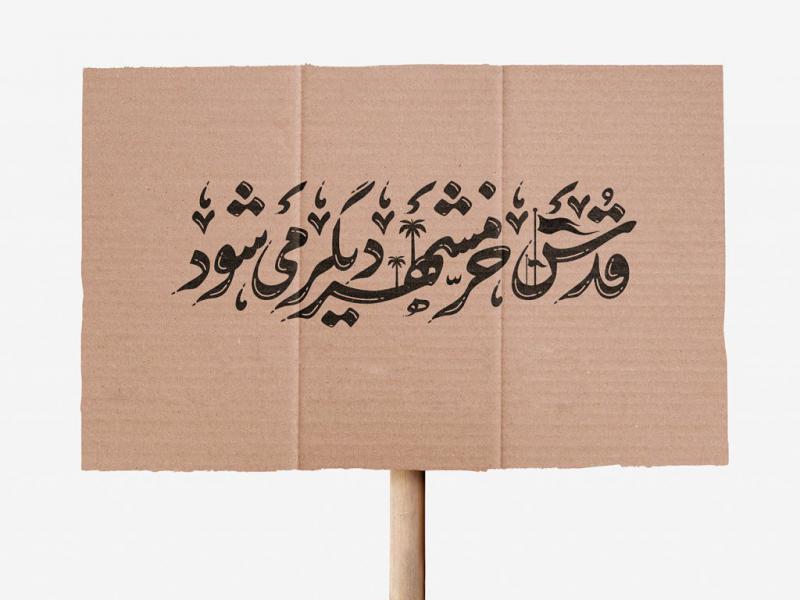 قدس خرمشهر دیگر می شود